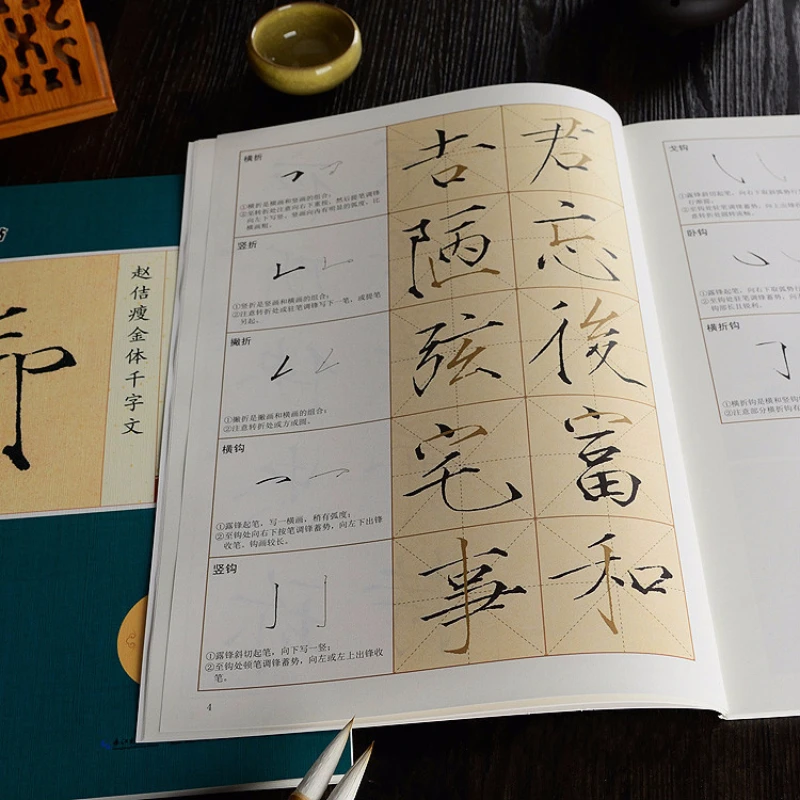 赵佶瘦金体千字文
横折
②至转折处注意向右下重按，然后提笔调锋
向左下写竖，竖画向内有明显的弧度，比
横画粗。
吉 君
竖折
①竖折是竖画和横画的组合；
②注意转折处或驻笔调锋写下一笔，或提笔
另起。
陋 忘
撇折
①撇折是撇画和横画的组合；
②注意转折处或方或圆。
弦 後
横钩
①露锋起笔，写一横画，稍有弧度；
②至钩处向右下按笔调锋蓄势，向左下出锋
收笔，钩画较长。
宅 富
竖钩
①露锋斜切起笔，向下写一竖；
②至钩处顿笔调锋蓄势，向左或左上出锋收
笔。
事 和
4
戈钩
卧钩
①露锋起笔，向右下取弧势行
②至钩处驻笔调锋蓄势，向
横折钩
①横折钩是横和竖钩
②注意部分横折钩有